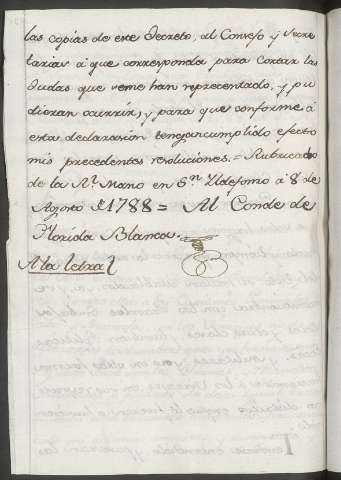 las copias de este Decreto, al Consejo y Secre
tarias á que corresponda para cortar las
dudas que seme han representado, y pu
dieran ocurrir, y para que conforme á
esta declarasion tengan cumplido efecto
mis precedentes resoluciones. = Rubricado
de la Rl. Mano en Sn. Yldefonso á 8 de
Agosto de 1788 = Al Conde de
Florida Blanca.
A la letra